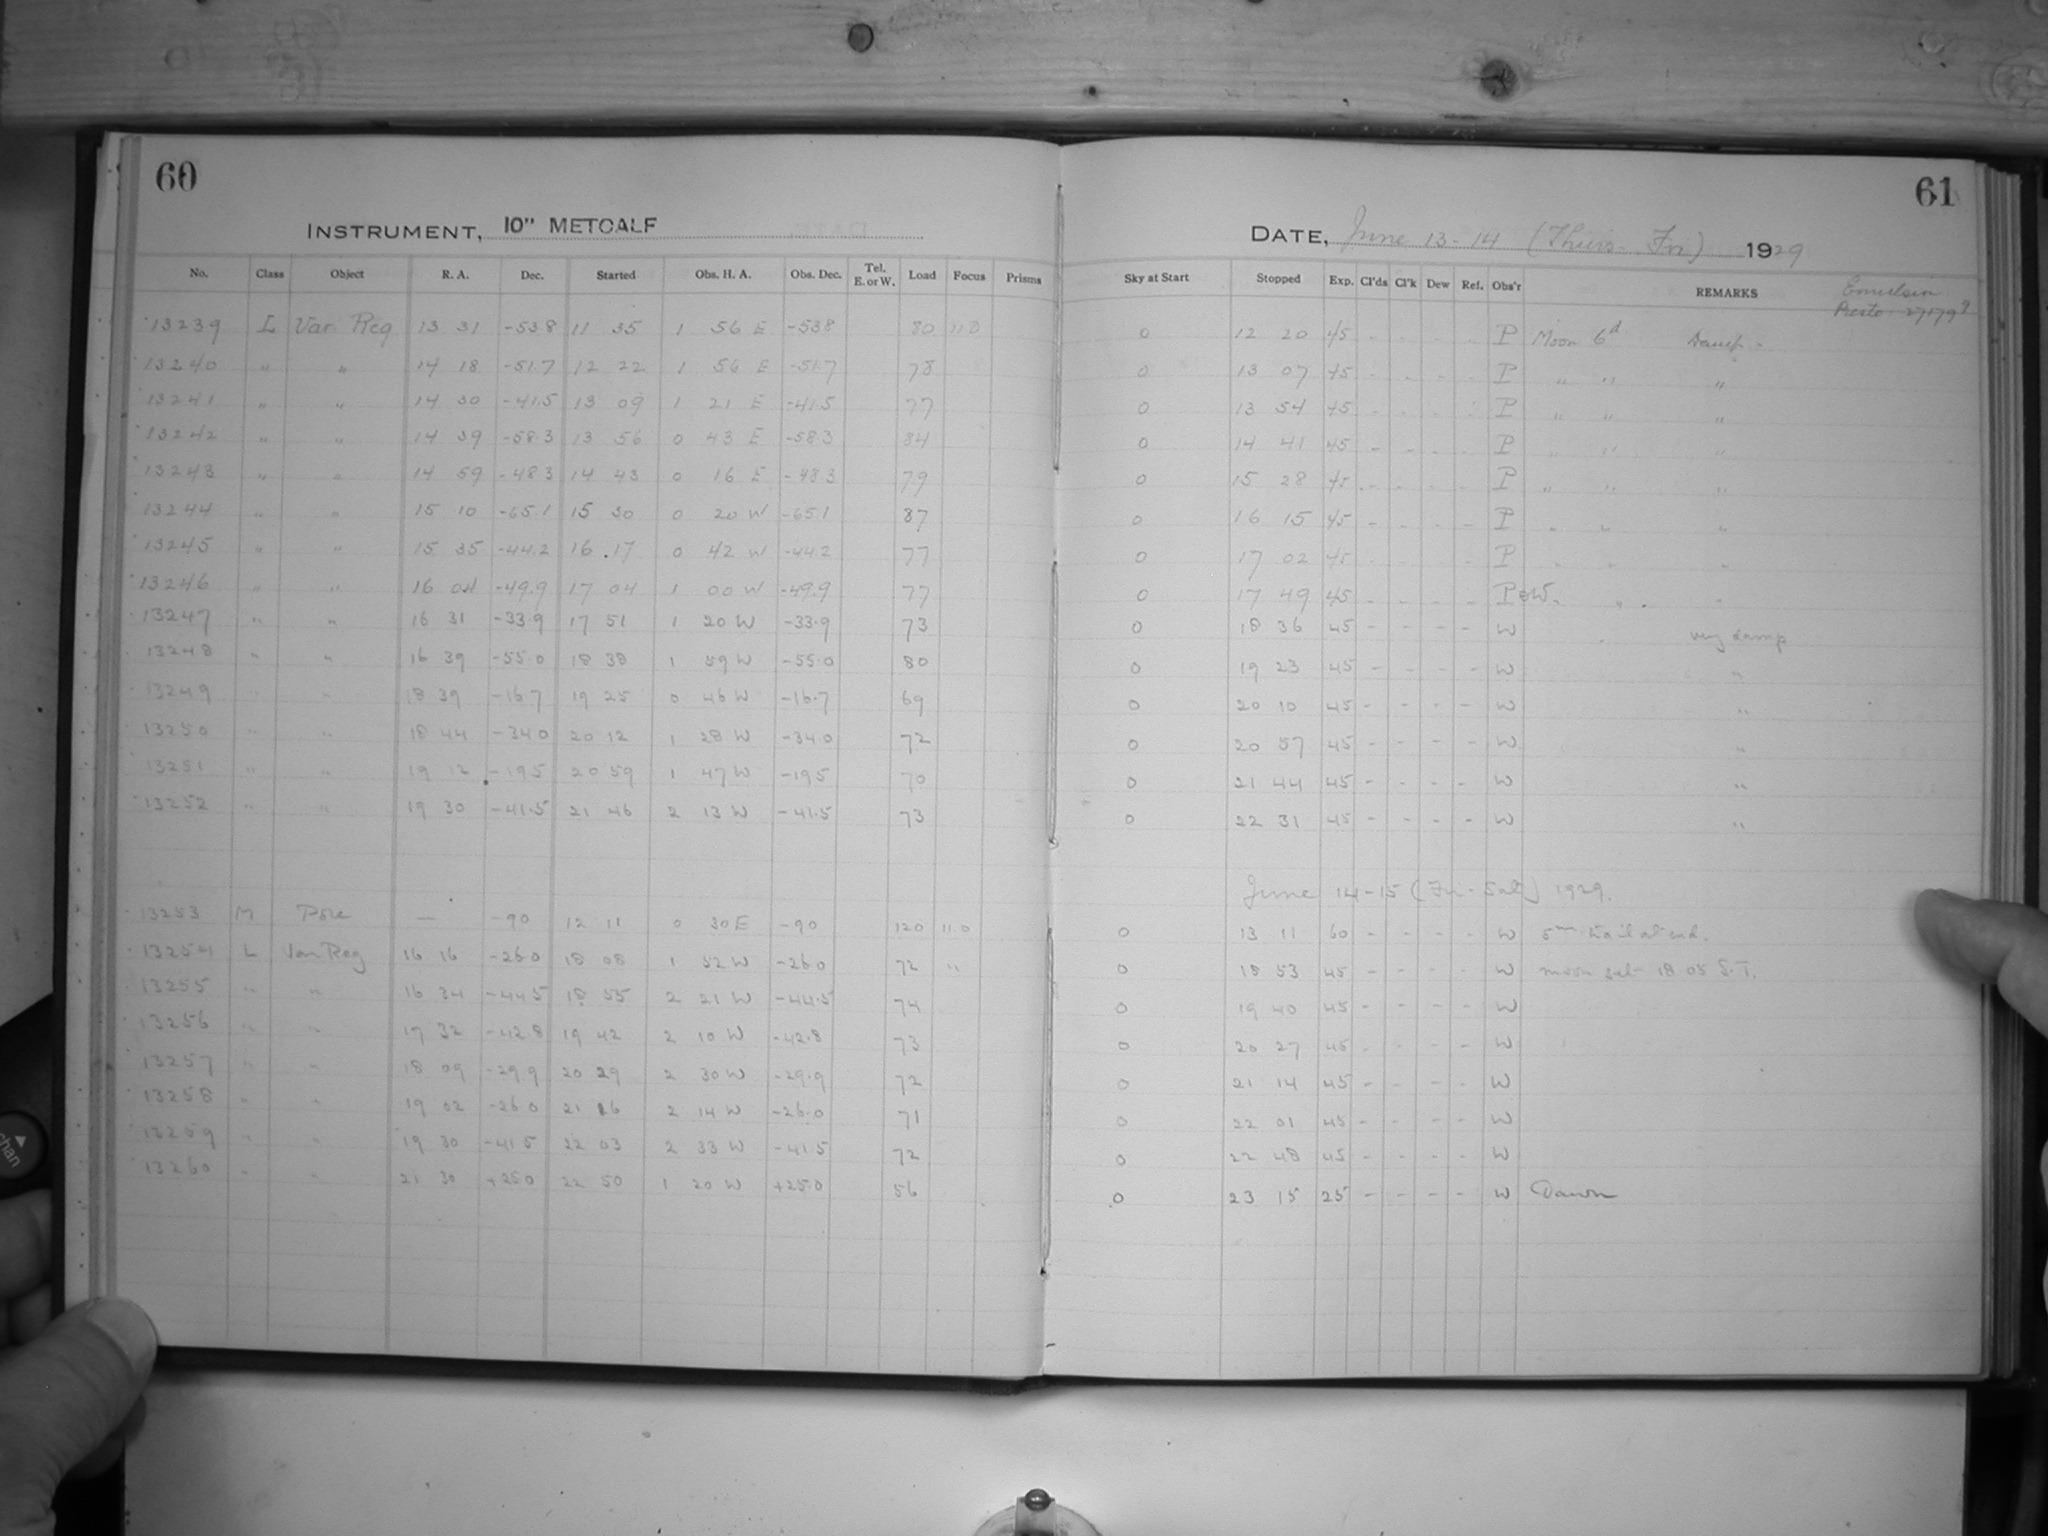 60
INSTRUMENT, 10" METCALF
No. Class Object R. A. Dec. Started Obs. H. A. Obs. Dec. Tel. E. or W. Load Focus Prisms
13239 L Var Reg 13 31 -53.8 11 35 1 56 E -53.8 80 11.0
13240 " " 14 18 -51.7 12 22 1 56 E -51.7 78
13241 " " 14 30 -41.5 13 09 1 21 E -41.5 77
13242 " " 14 39 -58.3 13 56 0 43 E -58.3 84
13243 " " 14 59 -48.3 14 43 0 16 E -48.3 79
13244 " " 15 10 -65.1 15 30 0 20 W -65.1 87
13245 " " 15 35 -44.2 16 17 0 42 W -44.2 77
13246 " " 16 04 -49.9 17 04 1 00 W -49.9 77
13247 " " 16 31 -33.9 17 51 1 20 W -33.9 73
13248 " " 16 39 -55.0 18 38 1 59 W -55.0 80
13249 " " 18 39 -16.7 19 25 0 46 W -16.7 69
13250 " " 18 44 -34.0 20 12 1 28 W -34.0 72
13251 " " 19 12 -19.5 20 59 1 47 W -19.5 70
13252 " " 19 30 -41.5 21 46 2 13 W -41.5 73
13253 M Pole — -90 12 11 0 30 E -90 120 11.0
13254 L Var Reg 16 16 -26.0 18 08 1 52 W -26.0 72 "
13255 " " 16 34 -44.5 18 55 2 21 W -44.5 74
13256 " " 17 32 -42.8 19 42 2 10 W -42.8 73
13257 " " 18 09 -29.9 20 29 2 30 W -29.9 72
13258 " " 19 02 -26.0 21 16 2 14 W -26.0 71
13259 " " 19 30 -41.5 22 03 2 33 W -41.5 72
13260 " " 21 30 +25.0 22 50 1 20 W +25.0 56
61
DATE, June 13-14 (Thurs-Fri) 1929
Sky at Start Stopped Exp. Cl'ds Cl'k Dew Ref. Obs'r REMARKS Emulsion
Presto 27179
0 12 20 45 - - - - P Moon 6d Damp -
0 13 07 45 - - - - P " " "
0 13 54 45 - - - - P " " "
0 14 41 45 - - - - P " " "
0 15 28 45 - - - - P " " "
0 16 15 45 - - - - P " " "
0 17 02 45 - - - - P " " "
0 17 49 45 - - - - P & W. " "
0 18 36 45 - - - - W " very damp
0 19 23 45 - - - - W "
0 20 10 45 - - - - W "
0 20 57 45 - - - - W "
0 21 44 45 - - - - W "
0 22 31 45 - - - - W "
June 14-15 (Fri-Sat) 1929.
0 13 11 60 - - - - W 5m trail at end.
0 18 53 45 - - - - W moon set 18 05 S.T.
0 19 40 45 - - - - W
0 20 27 45 - - - - W
0 21 14 45 - - - - W
0 22 01 45 - - - - W
0 22 48 45 - - - - W
0 23 15 25 - - - - W Dawn